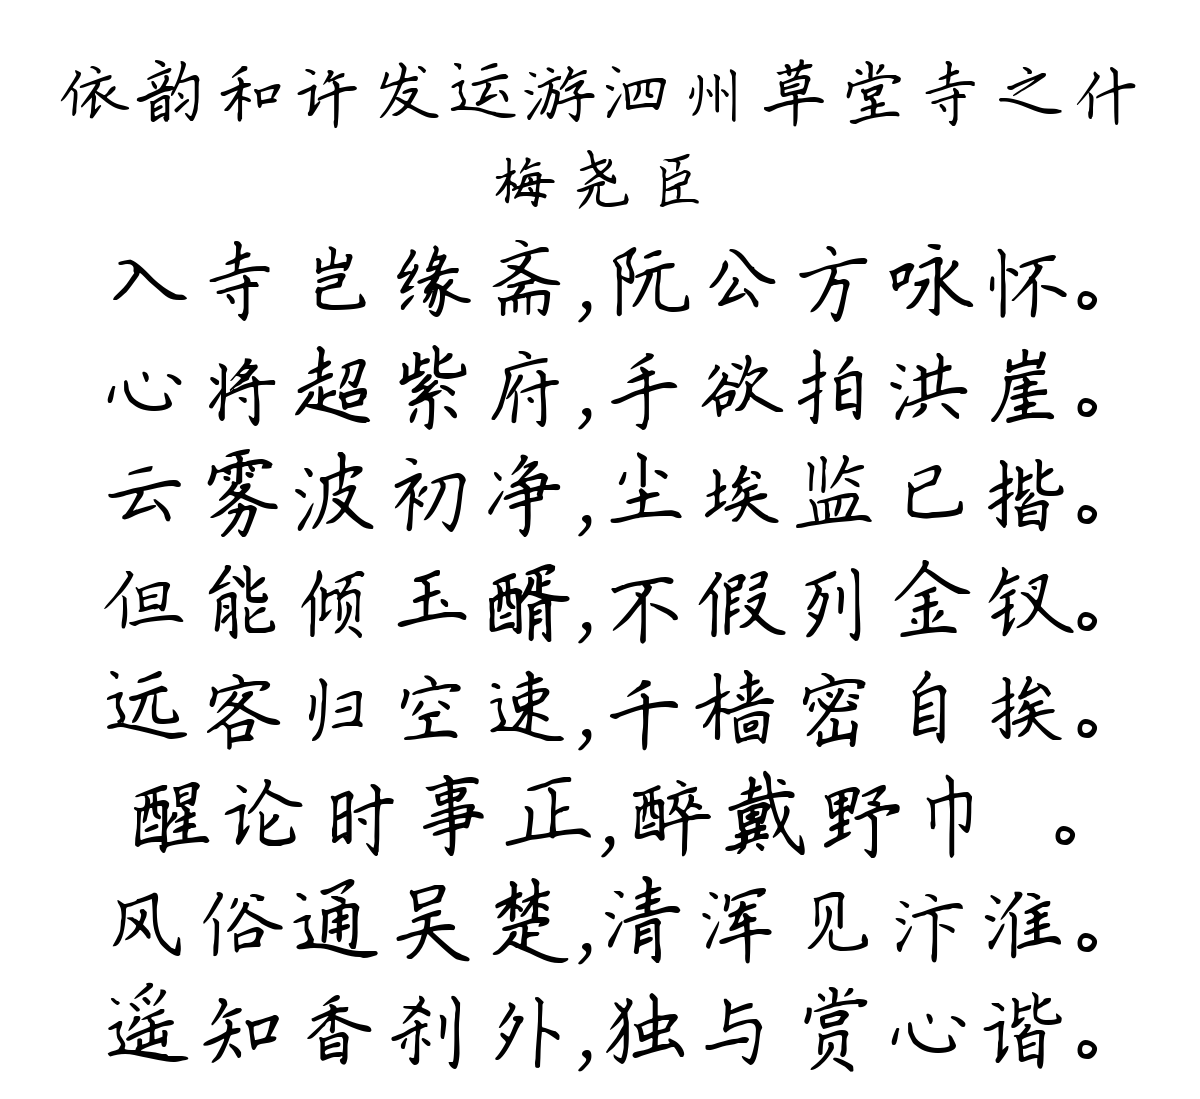 依韵和许发运游泗州草堂寺之什
梅尧臣
入寺岂缘斋,阮公方咏怀。
心将超紫府,手欲拍洪崖。
云雾波初净,尘埃监已揩。
但能倾玉醑,不假列金钗。
远客归空速,千樯密自挨。
醒论时事正,醉戴野巾 。
风俗通吴楚,清浑见汴淮。
遥知香刹外,独与赏心谐。